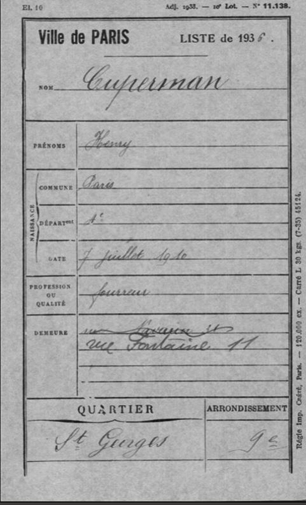 Et. 10 Adj. 1933. — 10e Lot. — N° 11.138.
Ville de PARIS LISTE de 1936.
NOM Cuperman
PRÉNOMS Henry
NAISSANCE
COMMUNE Paris
DÉPARTent
DATE 7 juillet 1910
PROFESSION OU QUALITÉ fourreur
DEMEURE
rue Fontaine 11
QUARTIER ARRONDISSEMENT
St Gorges 9e
Régie Imp. Créré, Paris. — 120.000 ex. — Carré L 30 kgs. (7-35) 45124.